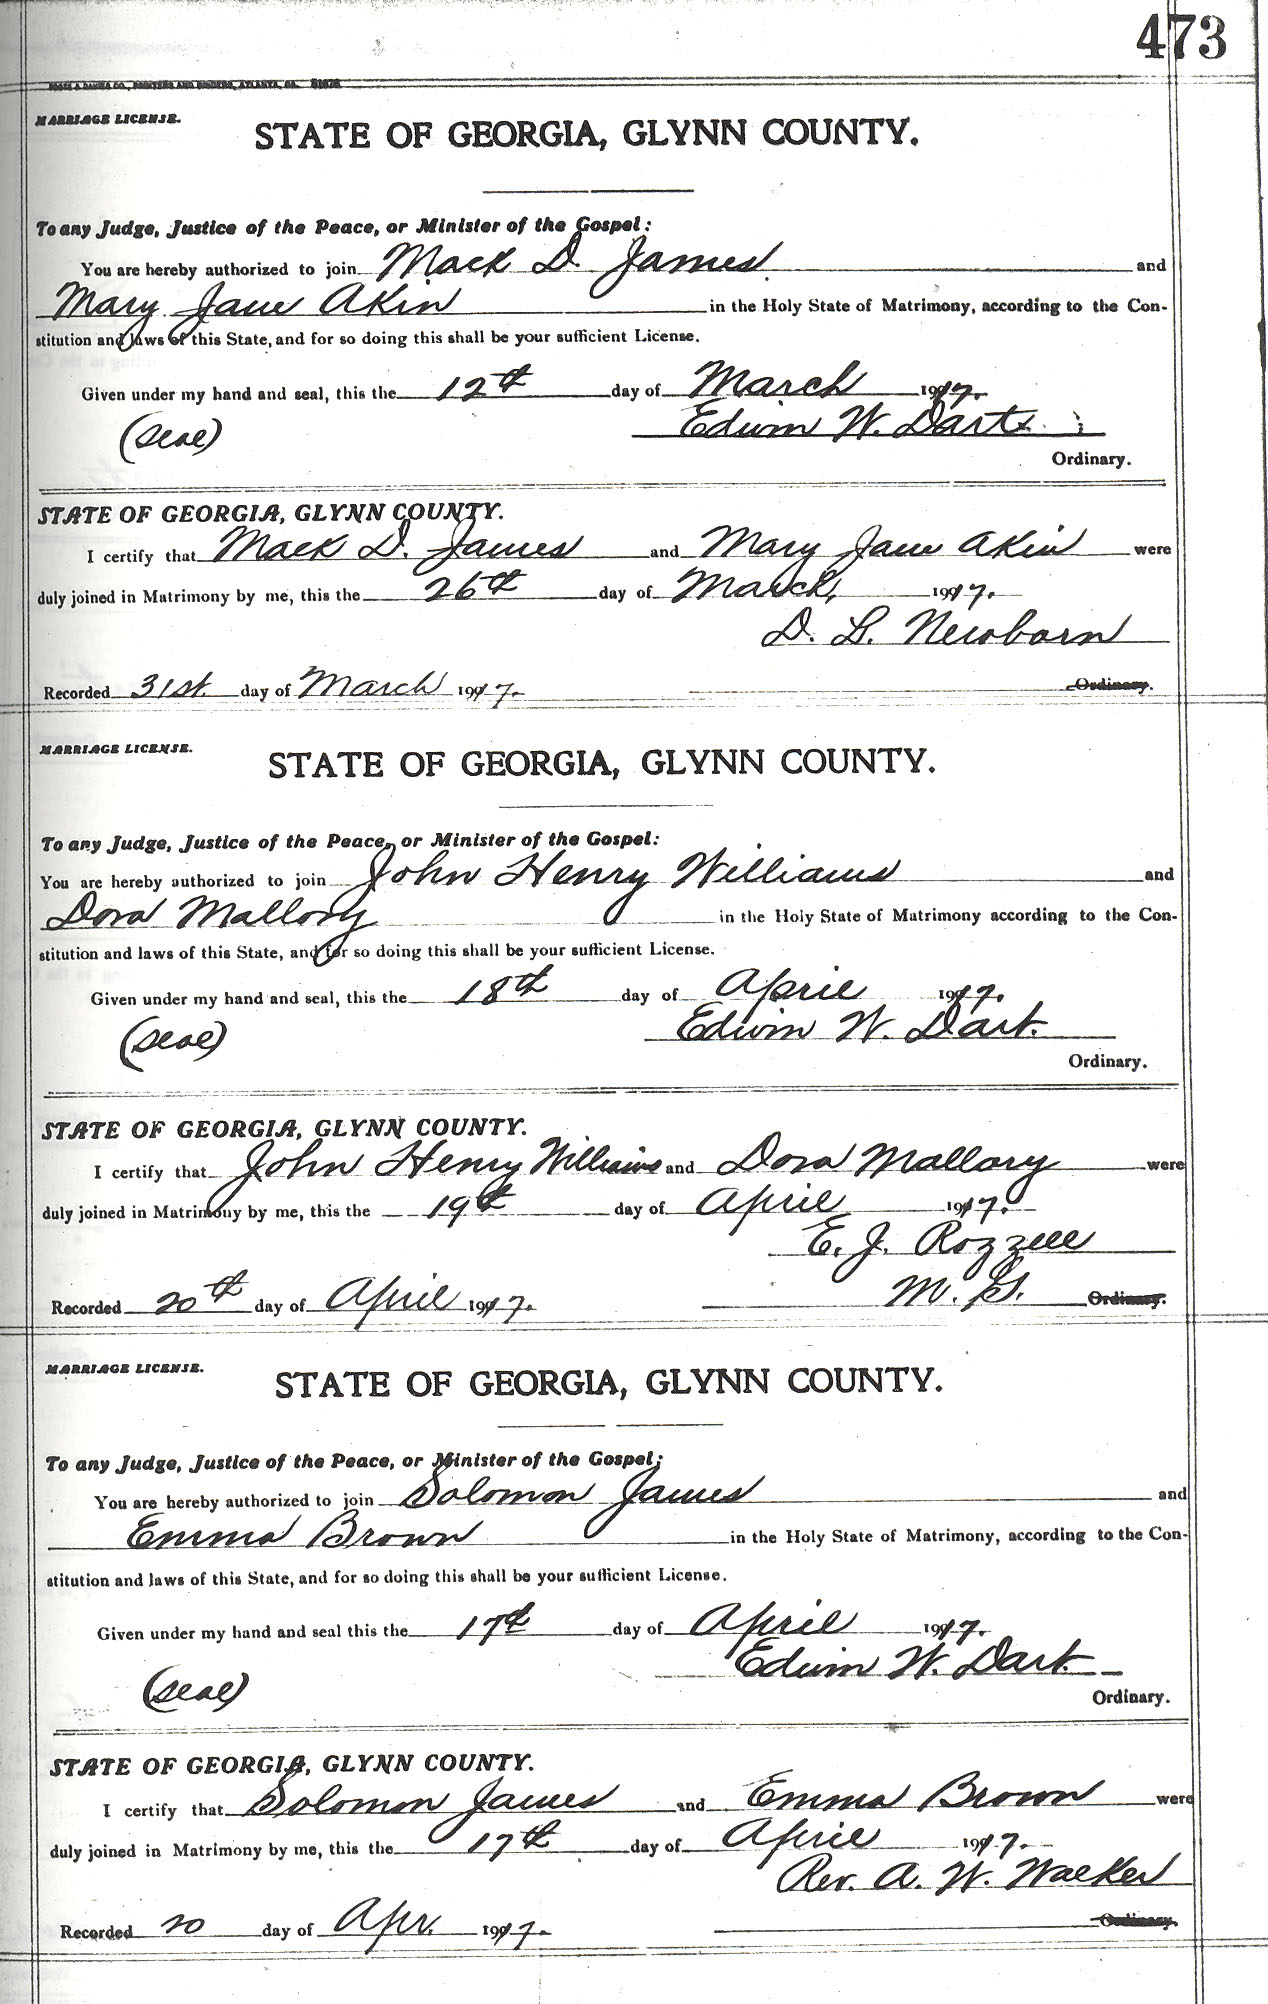 473
MARRIAGE LICENSE.
STATE OF GEORGIA, GLYNN COUNTY.
To any Judge, Justice of the Peace, or Minister of the Gospel:
You are hereby authorized to join Mack D. James and
Mary Jane Akin in the Holy State of Matrimony, according to the Con-
stitution and laws of this State, and for so doing this shall be your sufficient License.
Given under my hand and seal, this the 12th day of March 1917.
(Seal) Edwin W. Dart
Ordinary.
STATE OF GEORGIA, GLYNN COUNTY.
I certify that Mack D. James and Mary Jane Akin were
duly joined in Matrimony by me, this the 26th day of March, 1917.
D. L. Newborn
Recorded 31st. day of March 1917. Ordinary.
MARRIAGE LICENSE.
STATE OF GEORGIA, GLYNN COUNTY.
To any Judge, Justice of the Peace, or Minister of the Gospel:
You are hereby authorized to join John Henry Williams and
Dora Mallory in the Holy State of Matrimony according to the Con-
stitution and laws of this State, and for so doing this shall be your sufficient License.
Given under my hand and seal, this the 18th day of April 1917.
(Seal) Edwin W. Dart.
Ordinary.
STATE OF GEORGIA, GLYNN COUNTY.
I certify that John Henry Williams and Dora Mallory were
duly joined in Matrimony by me, this the 19th day of April 1917.
E. J. Rozzell
Recorded 20th day of April 1917. M. G. Ordinary.
MARRIAGE LICENSE.
STATE OF GEORGIA, GLYNN COUNTY.
To any Judge, Justice of the Peace, or Minister of the Gospel:
You are hereby authorized to join Solomon James and
Emma Brown in the Holy State of Matrimony, according to the Con-
stitution and laws of this State, and for so doing this shall be your sufficient License.
Given under my hand and seal this the 17th day of April 1917.
Edwin W. Dart
(Seal) Ordinary.
STATE OF GEORGIA, GLYNN COUNTY.
I certify that Solomon James and Emma Brown were
duly joined in Matrimony by me, this the 17th day of April 1917.
Rev. A. W. Walker
Recorded 20 day of Apr. 1917. Ordinary.